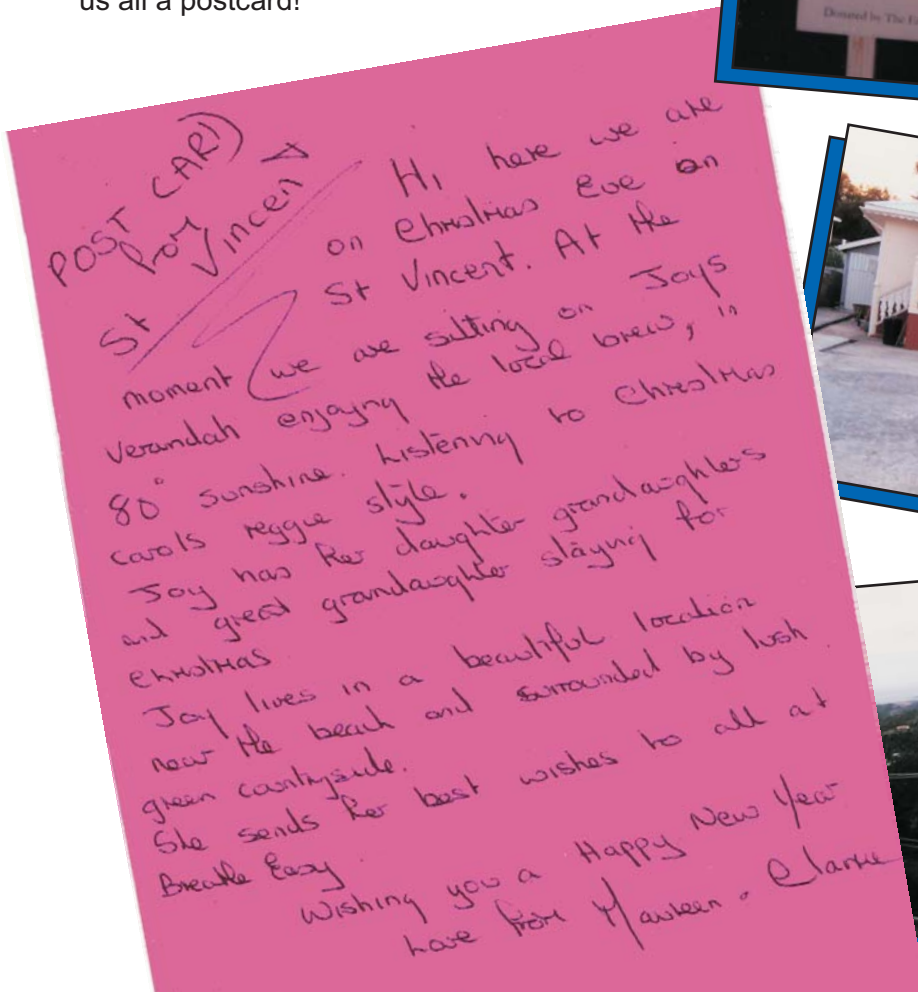 us all a postcard!
Donated by The
POST CARD
from
St Vincent
Hi here we are
on Christmas Eve on
St Vincent. At the
moment we are sitting on Joys
Verandah enjoying the local brew, in
80° sunshine. Listening to Christmas
carols reggie style.
Joy has her daughter grandaughters
and great grandaughter stayng for
Christmas
Joy lives in a beautiful location
near the beach and surrounded by lush
green countryside.
She sends her best wishes to all at
Breathe Easy
Wishing you a Happy New Year
Love from Maureen